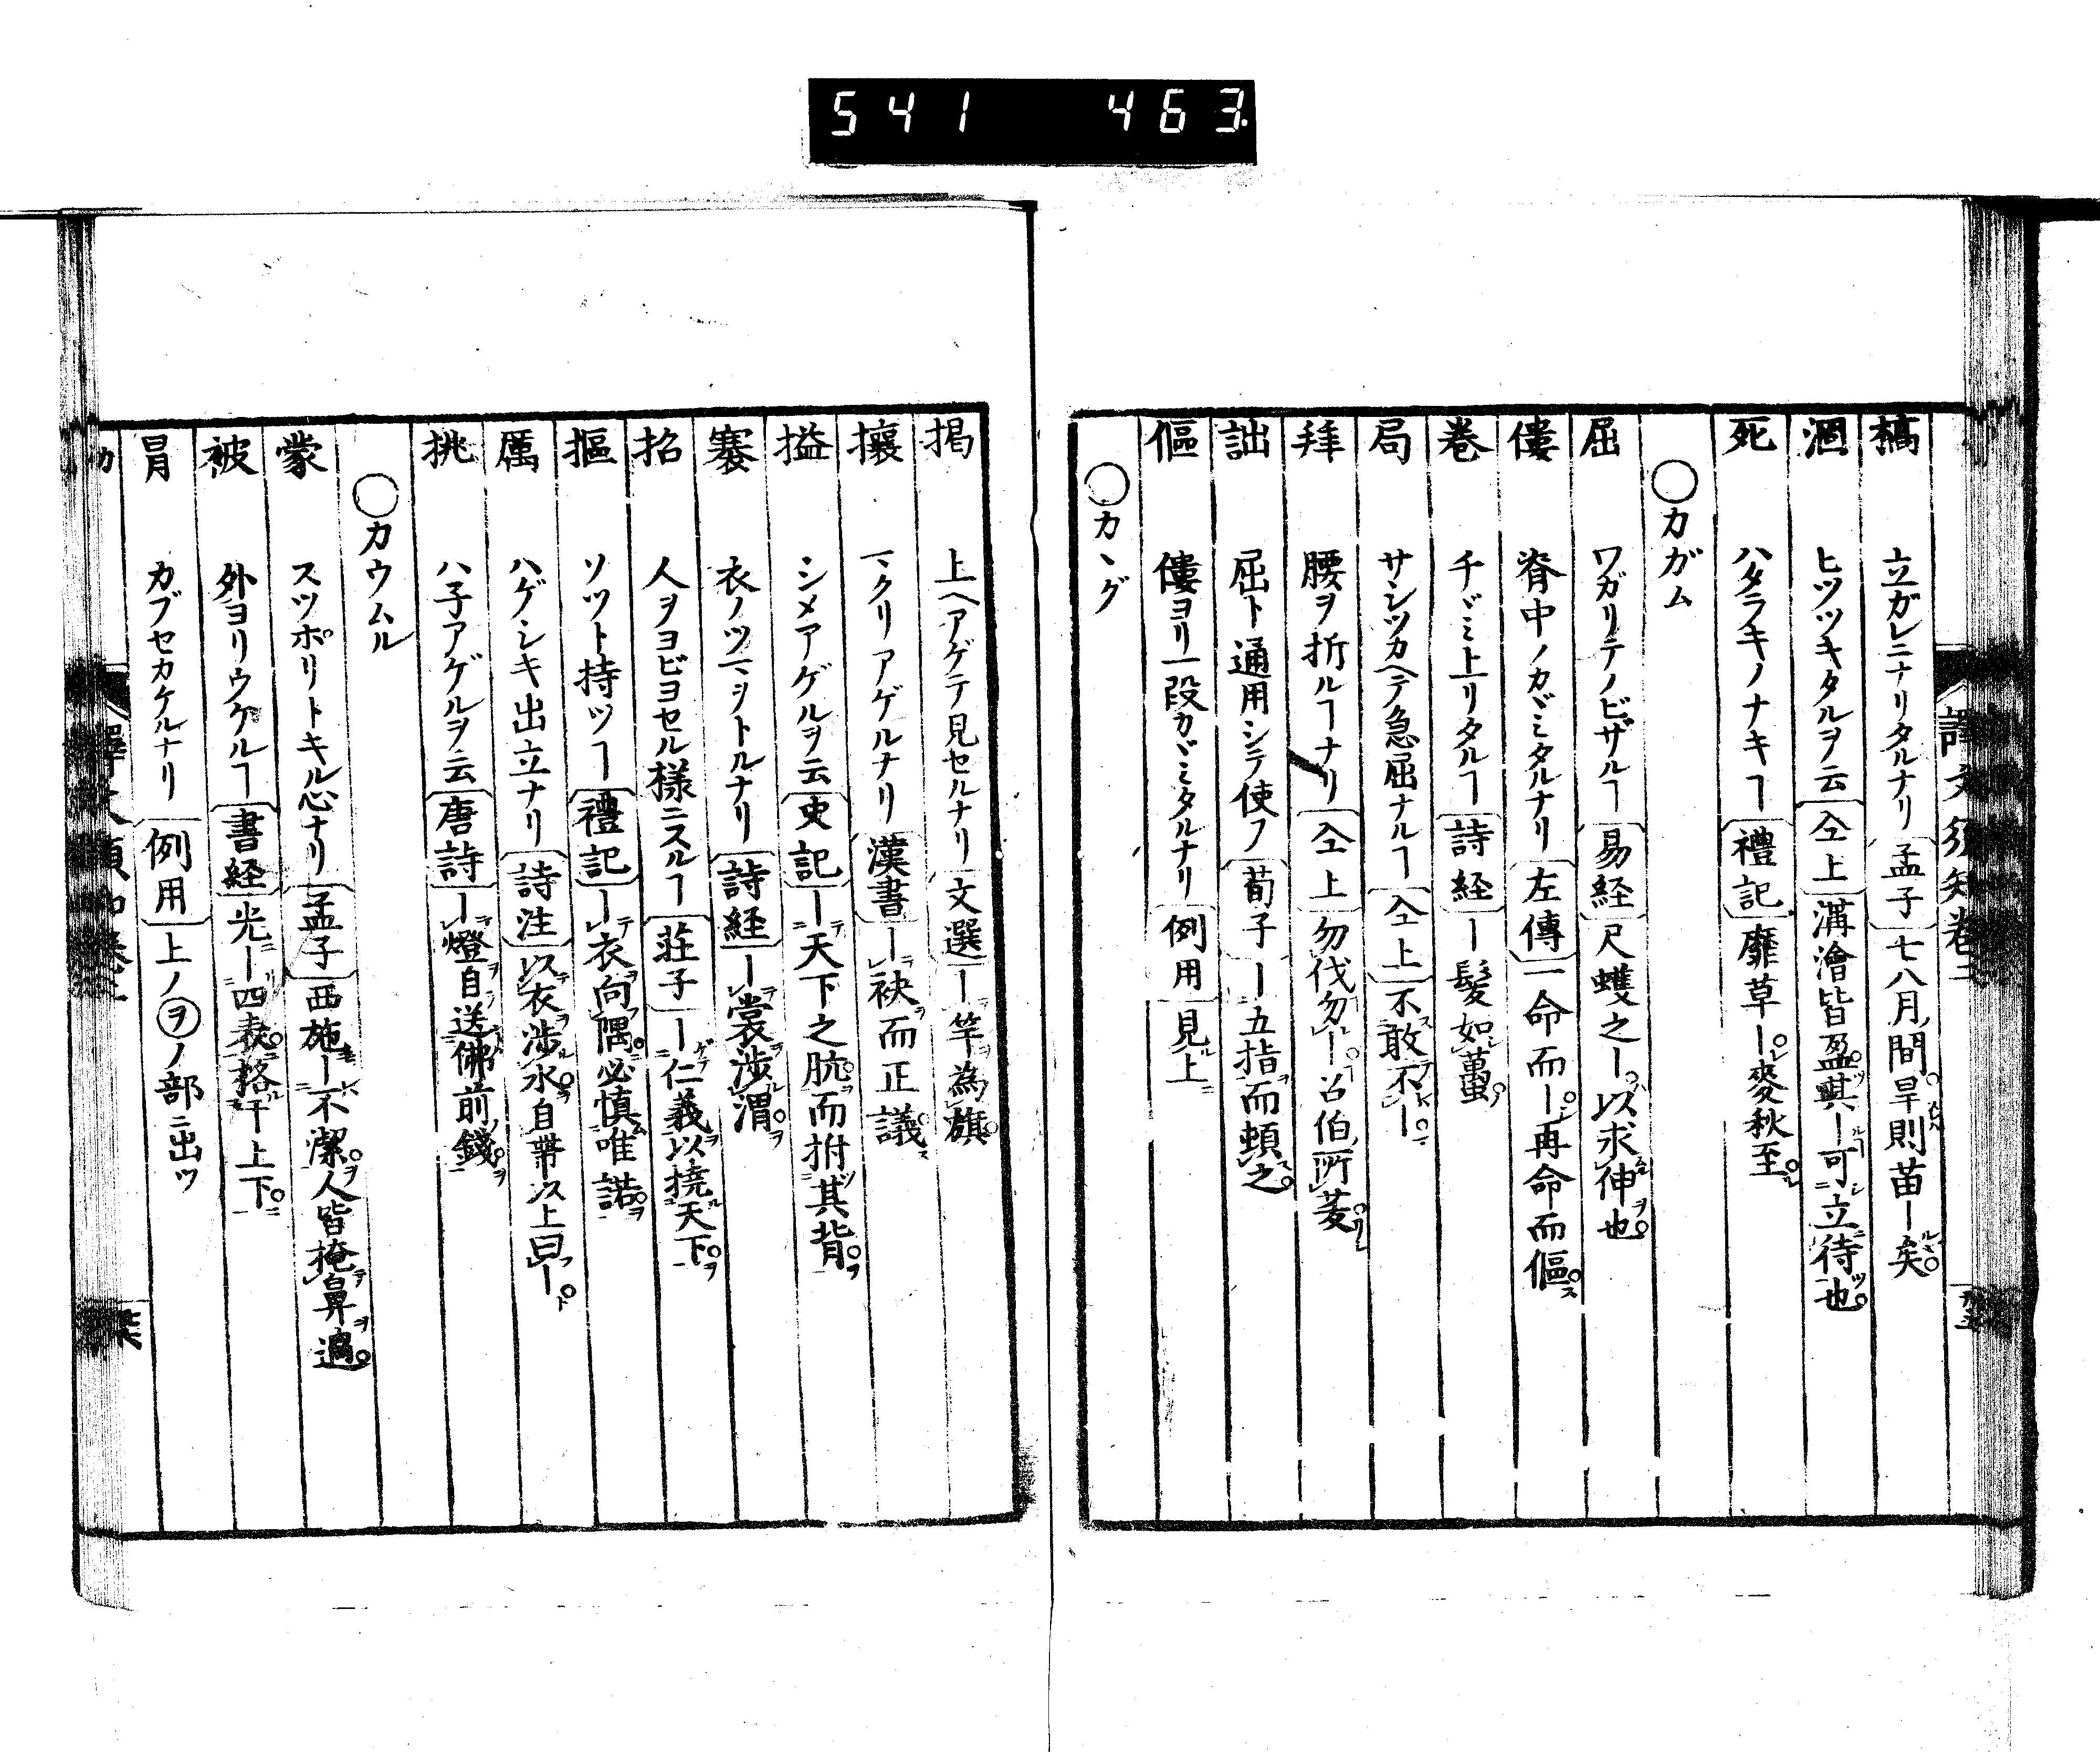 541 463
譯文須知卷二
槁 立ガレニナリタルナリ 孟子 七八月ノ間旱則苗ー矣
涸 ヒツツキタルヲ云 仝上 溝澮皆盈其ー可立待也
死 ハタラキノナキヿ 禮記 靡草ー麥秋至
○カガム
屈 ワガリテノビザルヿ 易経 尺蠖之ー以求伸也
僂 脊中ノカヾミタルナリ 左傳 一命而ー再命而傴
卷 チヾミ上リタルヿ 詩経 ー髮如蠆
局 サシツカヘテ急屈ナルヿ 仝上 不敢不ー
拜 腰ヲ折ルヿナリ 仝上 勿伐勿ー召伯所茇
詘 屈ト通用シテ使フ 荀子 ー五指而頓之
傴 僂ヨリ一段カヾミタルナリ 例用 見上
○カヽグ
掲 上ヘアゲテ見セルナリ 文選 ー竿為旗
攘 マクリアゲルナリ 漢書 ー袂而正議
搤 シメアゲルヲ云 史記 ー天下之肮而拊其背
褰 衣ノツマヲトルナリ 詩経 ー裳渉渭
招 人ヲヨビヨセル様ニスルヿ 莊子 ー仁義以撓天下
摳 ソツト持ツヿ 禮記 ー衣向隅必慎唯諾
厲 ハゲシキ出立ナリ 詩注 以衣渉水自帶以上曰ー
挑 ハ子アゲルヲ云 唐詩 ー燈自送佛前錢
○カウムル
蒙 スツポリトキル心ナリ 孟子 西施ー不潔人皆掩鼻過
被 外ヨリウケルヿ 書経 光ー四表格于上下
冐 カブセカケルナリ 例用 上ノヲノ部ニ出ツ